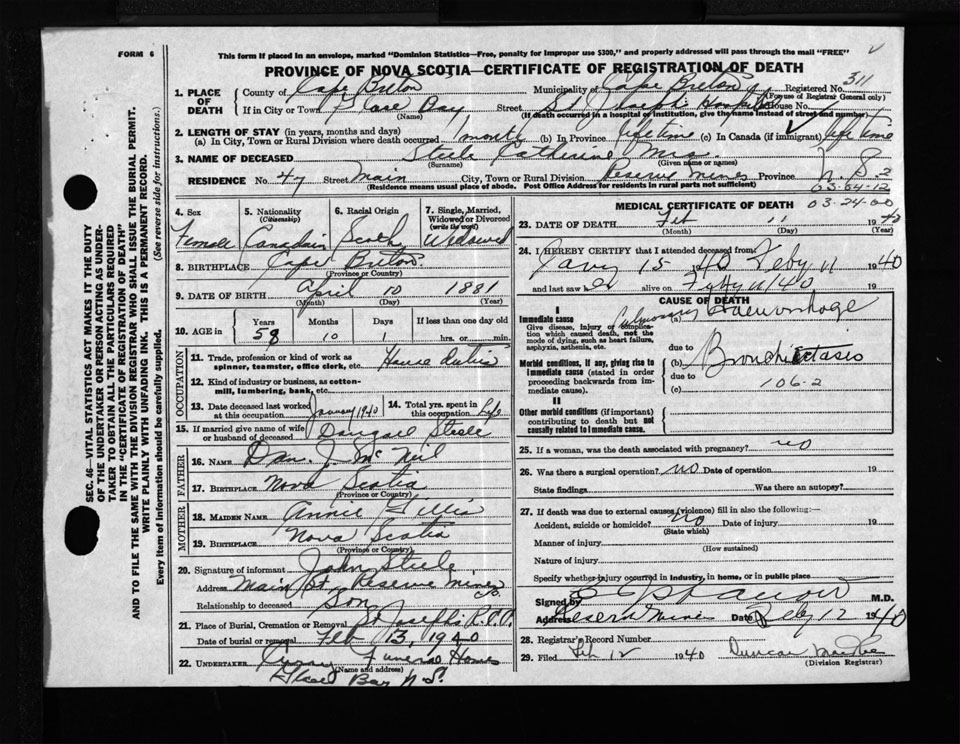 FORM 6
This form if placed in an envelope, marked "Dominion Statistics—Free, penalty for improper use $300," and properly addressed will pass through the mail "FREE"
PROVINCE OF NOVA SCOTIA—CERTIFICATE OF REGISTRATION OF DEATH
SEC. 46—VITAL STATISTICS ACT MAKES IT THE DUTY
OF THE UNDERTAKER OR PERSON ACTING AS UNDER-
TAKER TO OBTAIN ALL THE PARTICULARS REQUIRED
IN THE "CERTIFICATE OF REGISTRATION OF DEATH"
AND TO FILE THE SAME WITH THE DIVISION REGISTRAR WHO SHALL ISSUE THE BURIAL PERMIT.
WRITE PLAINLY WITH UNFADING INK. THIS IS A PERMANENT RECORD.
Every item of information should be carefully supplied. (See reverse side for instructions.)
1. PLACE OF DEATH County of Cape Breton Municipality of Cape Breton Registered No. 311
(For use of Registrar General only)
If in City or Town Glace Bay Street St Joseph Hospital House No.
(Name) (If death occurred in a hospital or institution, give the name instead of street and number)
2. LENGTH OF STAY (in years, months and days)
(a) In City, Town or Rural Division where death occurred 1 month (b) In Province life time (c) In Canada (if immigrant) life time
3. NAME OF DECEASED Steele Catherine Mrs.
(Surname) (Given name or names)
RESIDENCE No. 47 Street Main City, Town or Rural Division Reserve Mines Province N. S. 2
(Residence means usual place of abode. Post Office Address for residents in rural parts not sufficient)
03-04-12
03-24-00
4. Sex Female
5. Nationality (Citizenship) Canadain
6. Racial Origin Scotch
7. Single, Married, Widowed or Divorced (write the word) Widowed
8. BIRTHPLACE Cape Breton
(Province or Country)
9. DATE OF BIRTH April 10 1881
(Month) (Day) (Year)
10. AGE in Years 58 Months 10 Days 1 If less than one day old hrs. or min.
OCCUPATION
11. Trade, profession or kind of work as spinner, teamster, office clerk, etc. House duties
12. Kind of industry or business, as cotton-mill, lumbering, bank, etc.
13. Date deceased last worked at this occupation January 1940
14. Total yrs. spent in this occupation Life
15. If married give name of wife or husband of deceased Dougall Steele
FATHER
16. NAME Dan. J. McNeil
17. BIRTHPLACE Nova Scotia
(Province or Country)
MOTHER
18. MAIDEN NAME Annie Gillis
19. BIRTHPLACE Nova Scotia
(Province or Country)
20. Signature of informant John Steele
Address Main St. Reserve Mines
Relationship to deceased Son
21. Place of Burial, Cremation or Removal St Josephs R.C.
Date of burial or removal Feb 13, 1940
22. UNDERTAKER Funeral Home
(Name and address)
Glace Bay N.S.
MEDICAL CERTIFICATE OF DEATH
23. DATE OF DEATH Feb 11 1940
(Month) (Day) (Year)
24. I HEREBY CERTIFY that I attended deceased from
Jany 15 1940 Feby 11 1940
and last saw her alive on Feby 11/40
CAUSE OF DEATH
I
Immediate cause
Give disease, injury or complication which caused death, not the mode of dying, such as heart failure, asphyxia, asthenia, etc.
(a) Pulmonary Haemorrhage
due to
Morbid conditions, if any, giving rise to immediate cause (stated in order proceeding backwards from immediate cause).
(b) Bronchiectasis
due to
(c) 106-2
II
Other morbid conditions (if important) contributing to death but not causally related to immediate cause.
25. If a woman, was the death associated with pregnancy? no
26. Was there a surgical operation? no Date of operation 19
State findings Was there an autopsy?
27. If death was due to external causes (violence) fill in also the following:—
Accident, suicide or homicide? no Date of injury 19
(State which)
Manner of injury
(How sustained)
Nature of injury
Specify whether injury occurred in industry, in home, or in public place
Signed by M.D.
Address Reserve Mines Date Feby 12 1940
28. Registrar's Record Number
29. Filed Feb 12 1940 Duncan
(Division Registrar)